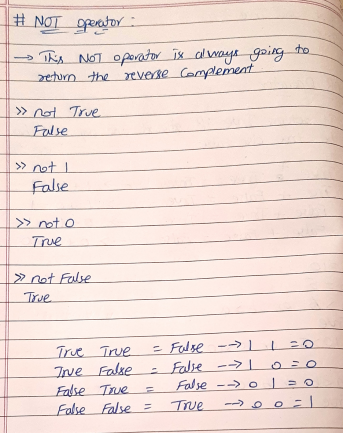 # NOT operator :
→ This NOT operator is always going to
return the reverse complement
>> not True
False
>> not 1
False
>> not 0
True
>> not False
True
True True = False --> 1 1 = 0
True False = False --> 1 0 = 0
False True = False --> 0 1 = 0
False False = True --> 0 0 = 1